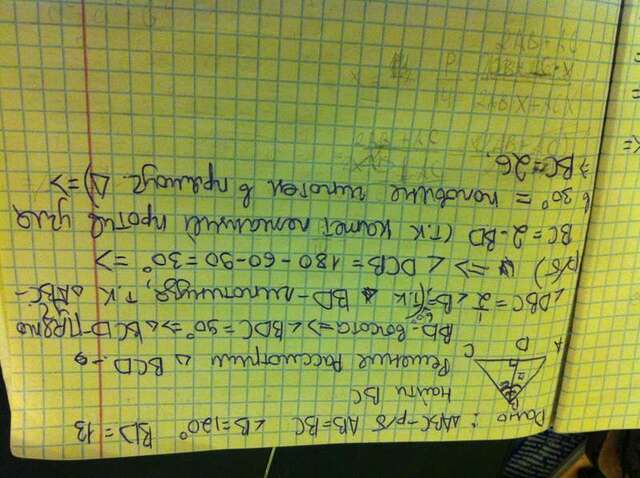 Дано: ΔABC-р/б AB=BC ∠B=120° BD=13
Найти BC
B
A D C
Решение Рассмотрим Δ BCD
BD-высота=>∠BDC=90°=>ΔBCD-прямо
∠DBC=1/2 ∠B=60°(т.к BD-гипотинуза, т.к ΔABC-
р/б) => ∠DCB=180-60-90=30° =>
BC=2·BD (т.к катет лежащий против угла
в 30° = половине гипотен в прямоуг. Δ)=>
=>BC=26.